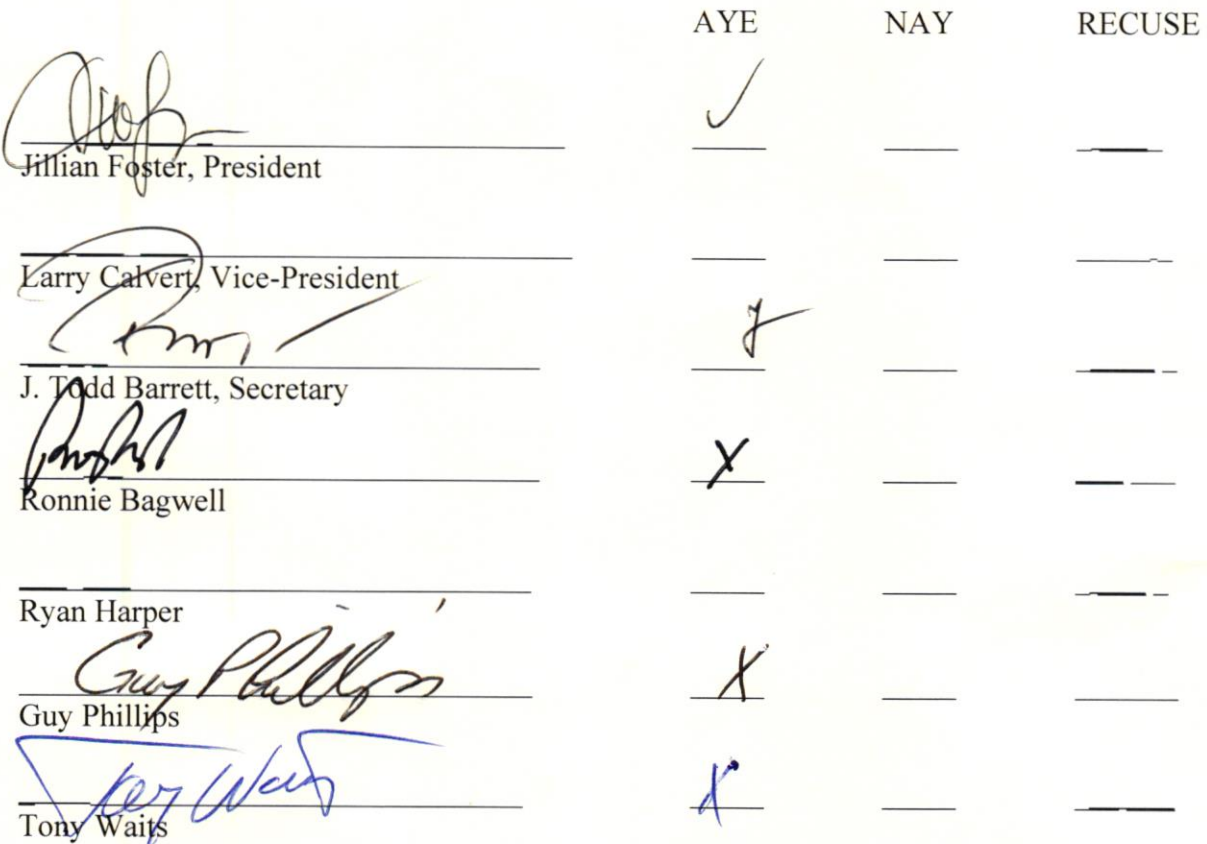 AYE NAY RECUSE
✓
Jillian Foster, President
Larry Calvert, Vice-President
J. Todd Barrett, Secretary
X
Ronnie Bagwell
Ryan Harper
Guy Phillips X
Guy Phillips
Tony Waits X
Tony Waits